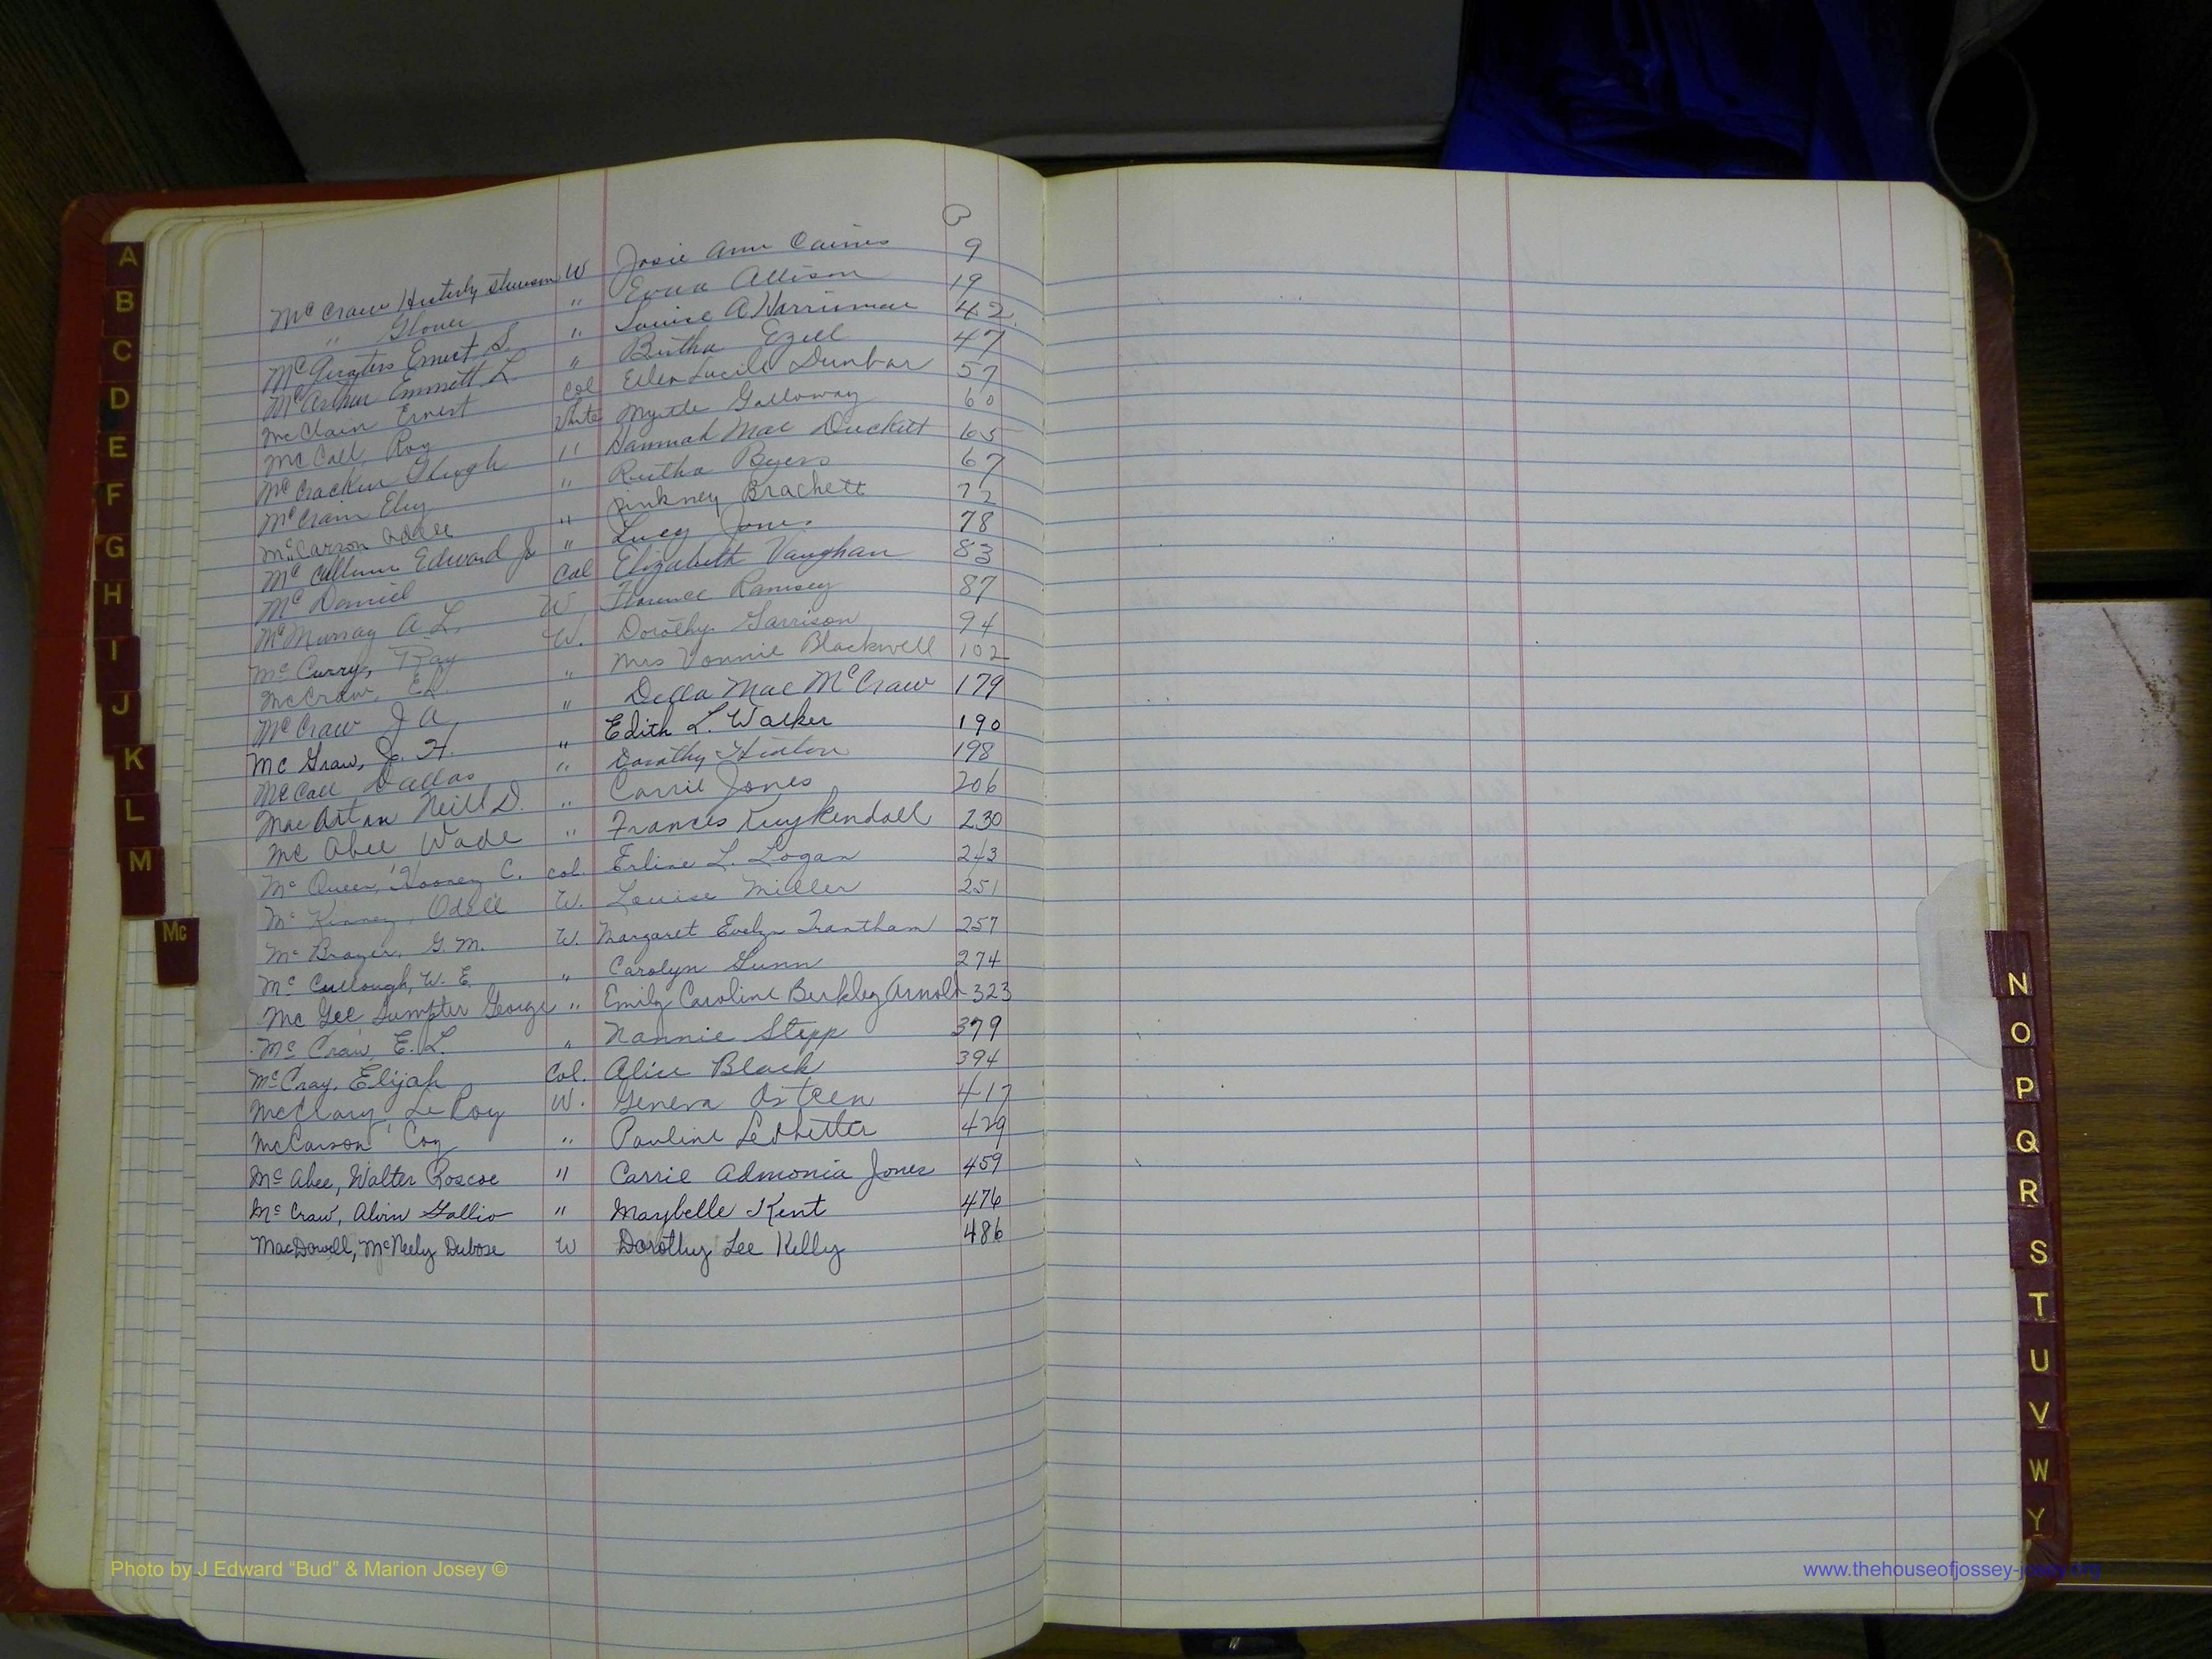 A
B
C
D
E
F
G
H
I
J
K
L
M
Mc
McCraw W Josie Ann Caines 9
" Glover " Allison 19
Ernest S. " Louise A Harriman 42
McArthur Emmett L. " Bertha Ezell 47
McClain Ernest Col Ellen Lucile Dunbar 57
McCall, Roy White Myrtle Galloway 60
McCracken Hugh " Hannah Mae Duckett 65
McCraw " Byers 67
McCarson Odell " Pinkney Brachett 72
Edward Jr " Lucy Jones 78
McDaniel Col Elizabeth Vaughan 83
McMurray A L. W Florence Ramsey 87
McCurry, Ray W. Dorothy Garrison 94
McCraw, " Mrs Vonnie Blackwell 102
McCraw J A, " Della Mae McCraw 179
McGraw, J. H. " Edith L. Walker 190
McCall Dallas " Dorothy 198
Neill D. " Carrie Jones 206
McAbee Wade " Frances Kuykendall 230
McQueen, C. Col. Erline L. Logan 243
McKinney, Odell W. Louise Miller 251
McBrayer, G. M. W. Margaret Evelyn Trantham 257
McCullough, W. E " Carolyn Gunn 274
McGee Sumpter George " Emily Caroline Berkley Arnold 323
McCraw, E. L. " Nannie Stepp 379
McCray, Elijah Col. Alice Black 394
McClary, LeRoy W. Geneva Osteen 417
McCarson Coy " Pauline Ledbetter 429
McAbee, Walter Roscoe " Carrie Admonia Jones 459
McCraw, Alvin Gallio " Maybelle Kent 476
MacDowell, McNeely Dubose W Dorothy Lee Kelly 486
N
O
P
Q
R
S
T
U
V
W
Y
Photo by J Edward “Bud” & Marion Josey ©
www.thehouseofjossey-josey.org